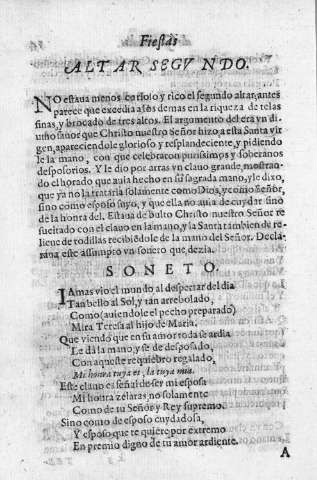 Fiestas
ALTAR SEGVNDO.
NO estaua menos curioso y rico el segundo altar, antes
parece que excedia a los demas en la riqueza de telas
finas, y brocado de tres altos. El argumento del era vn di-
uino fauor que Christo nuestro Señor hizo a esta Santa vir
gen, apareciendole glorioso y resplandeciente, y pidiendo
le la mano, con que celebraron purissimos y soberanos
desposorios. Y le dio por arras vn clauo grande, mostran-
do el horado que auia hecho en su sagrada mano, y le dixo,
que ya no la trataria solamente como Dios, y como Señor,
sino como esposo suyo, y que ella no auia de cuydar sino
de la honra del. Estaua de bulto Christo nuestro Señor re
sucitado con el clauo en la mano, y la Santa tambien de re-
lieue de rodillas recibiẽdole de la mano del Señor. Decla
raua este assumpto vn soneto que dezia.
SONETO.
IAmas vio el mundo al despertar del dia
Tan bello al Sol, y tan arrebolado,
Como (auiendole el pecho preparado)
Mira Teresa al hijo de Maria.
Que viendo que en su amor toda se ardia
Le dà la mano, y se de desposado,
Con aqueste requiebro regalado,
Mi honra tuya es, la tuya mia.
Este clauo es señal de ser mi esposa
Mi honra zelaras no solamente
Como de tu Señor y Rey supremo.
Sino como de esposo cuydadosa,
Y esposo que te quiere por extremo
En premio digno de tu amor ardiente.
A